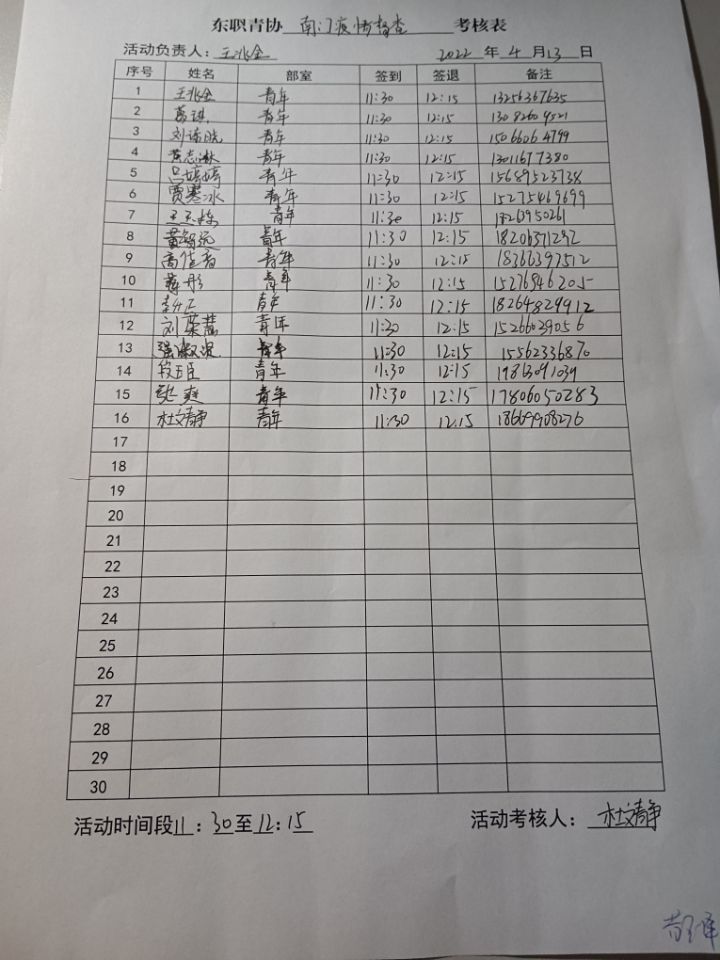 东职青协 南门疫情督查 考核表
活动负责人：王兆全 2022 年 4 月 13 日
序号 姓名 部室 签到 签退 备注
1 王兆全 青年 11:30 12:15 13256367635
2 青年 11:30 12:15 13082604521
3 青年 11:30 12:15 15066064799
4 青年 11:30 12:15 13011677380
5 吕婷婷 青年 11:30 12:15 15689523738
6 贾寒冰 青年 11:30 12:15 15275469699
7 青年 11:30 12:15 18263950261
8 黄智远 青年 11:30 12:15
9 高佳睿 青年 11:30 12:15 18366397512
10 蒋彤 青年 11:30 12:15 15276846205
11 青年 11:30 12:15 18264829912
12 刘荣慧 青年 11:30 12:15 15266029056
13 青年 11:30 12:15 15562336870
14 段玉臣 青年 11:30 12:15 19863091039
15 青年 11:30 12:15 17806050283
16 杜文静 青年 11:30 12:15 18669908276
17
18
19
20
21
22
23
24
25
26
27
28
29
30
活动时间段11：30至12：15 活动考核人：杜文静